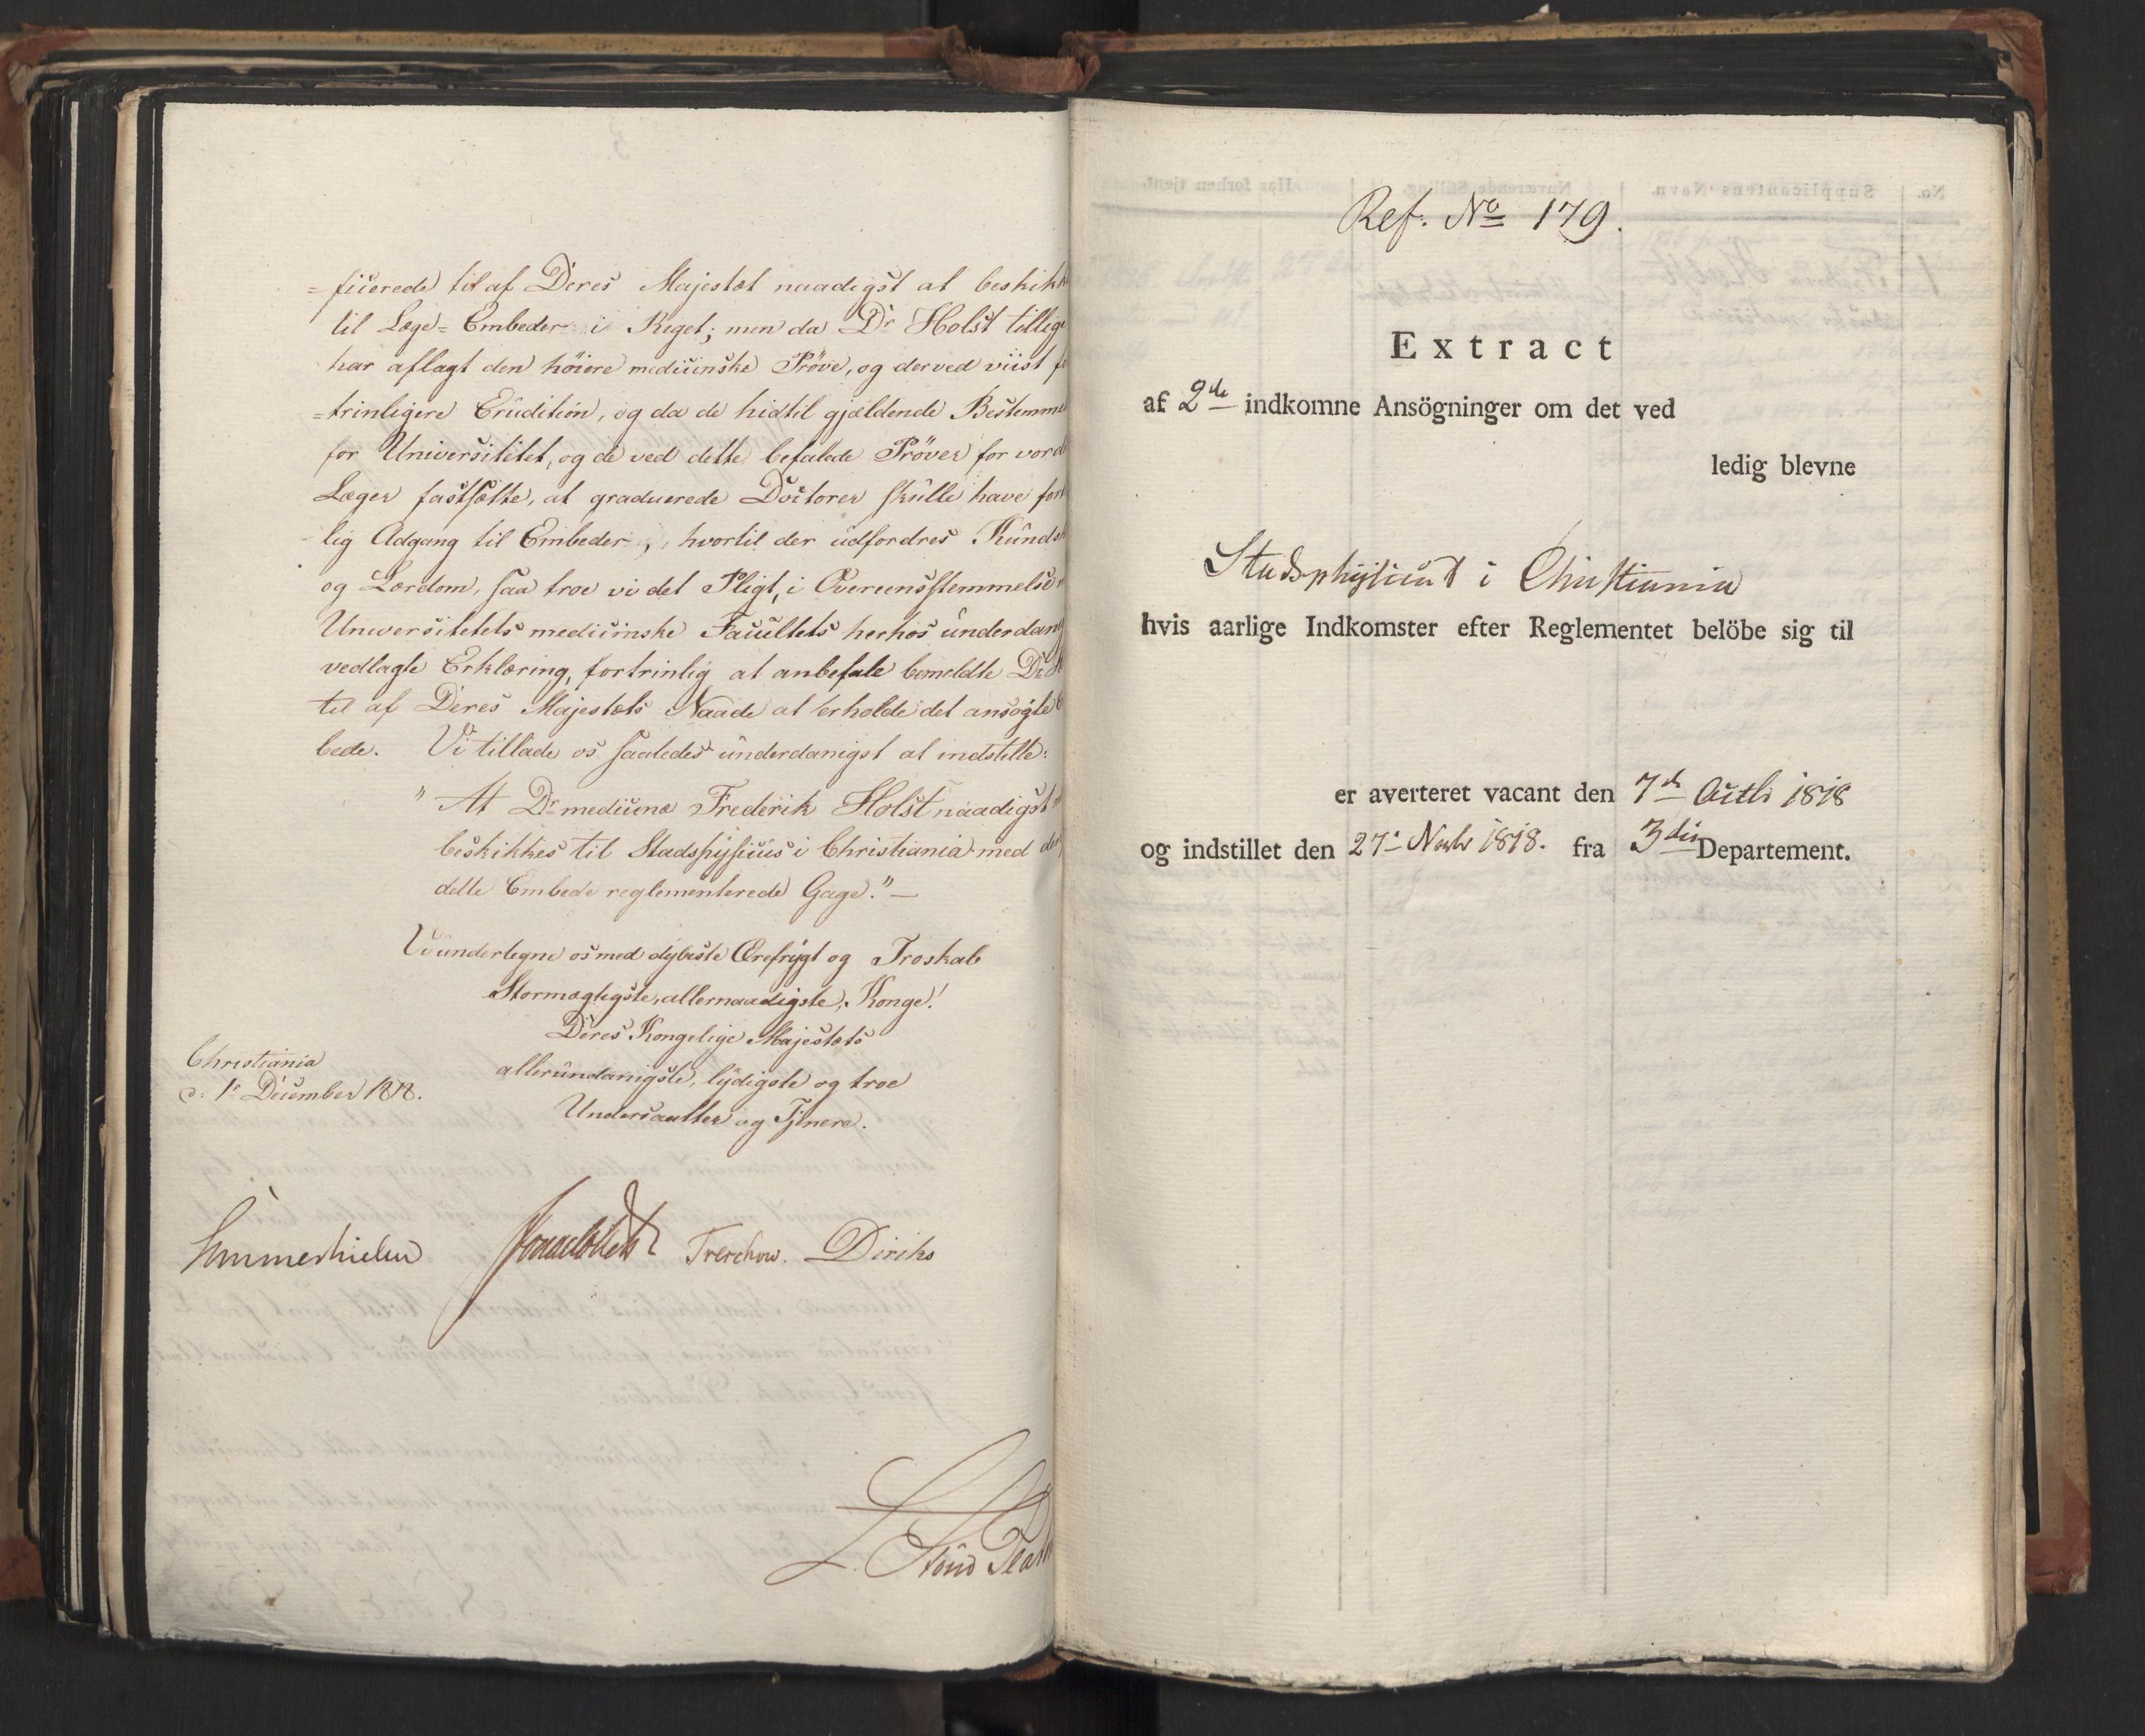 =ficerede til af Deres Majestæt naadigst at beskikk
til Læge=Embeder i Riget; men da Dr Holst tillige
har aflagt den höiere medicinske Pröve, og derved viist
=trinligere Erudition, og da de hidtil gjældende Bestemme
for Universitetet, og de ved dette befalede Pröver for vord
Læger fastsætte, at graduerede Doctorer skulle have for
lig Adgang til Embeder, hvortil der udfordres Kunds
og Lærdom, saa troe vi det Pligt, i Overeensstemmelse
Universitetets medicinske Facultets herhos underdan
vedlagte Erklæring, fortrinlig at anbefale bemeldte Dr
til af Deres Majestæts Naade at erholde det ansögte
bede. Vi tillade os saaledes underdanigst at indstille:
"At Dr medicinæ Frederik Holst naadigst
beskikkes til Stadsphysicus i Christiania med
dette Embede reglementerede Gage." —
Vi undertegne os med dybeste Ærefrygt og Troskab
Stormægtigste, allernaadigste Konge!
Deres Kongelige Majestæts
allerundanigste, lydigste og troe
Undersaatter og Tjenere.
Christiania
d: 1e December 1818.
Sommerhielm
Treschow. Diriks
Ref. No 179.
Extract
af 2de indkomne Ansögninger om det ved
ledig blevne
Stadsphysicat i Christiania
hvis aarlige Indkomster efter Reglementet belöbe sig til
er averteret vacant den 7de Octb 1818
og indstillet den 27 Novbr 1818. fra 3die Departement.